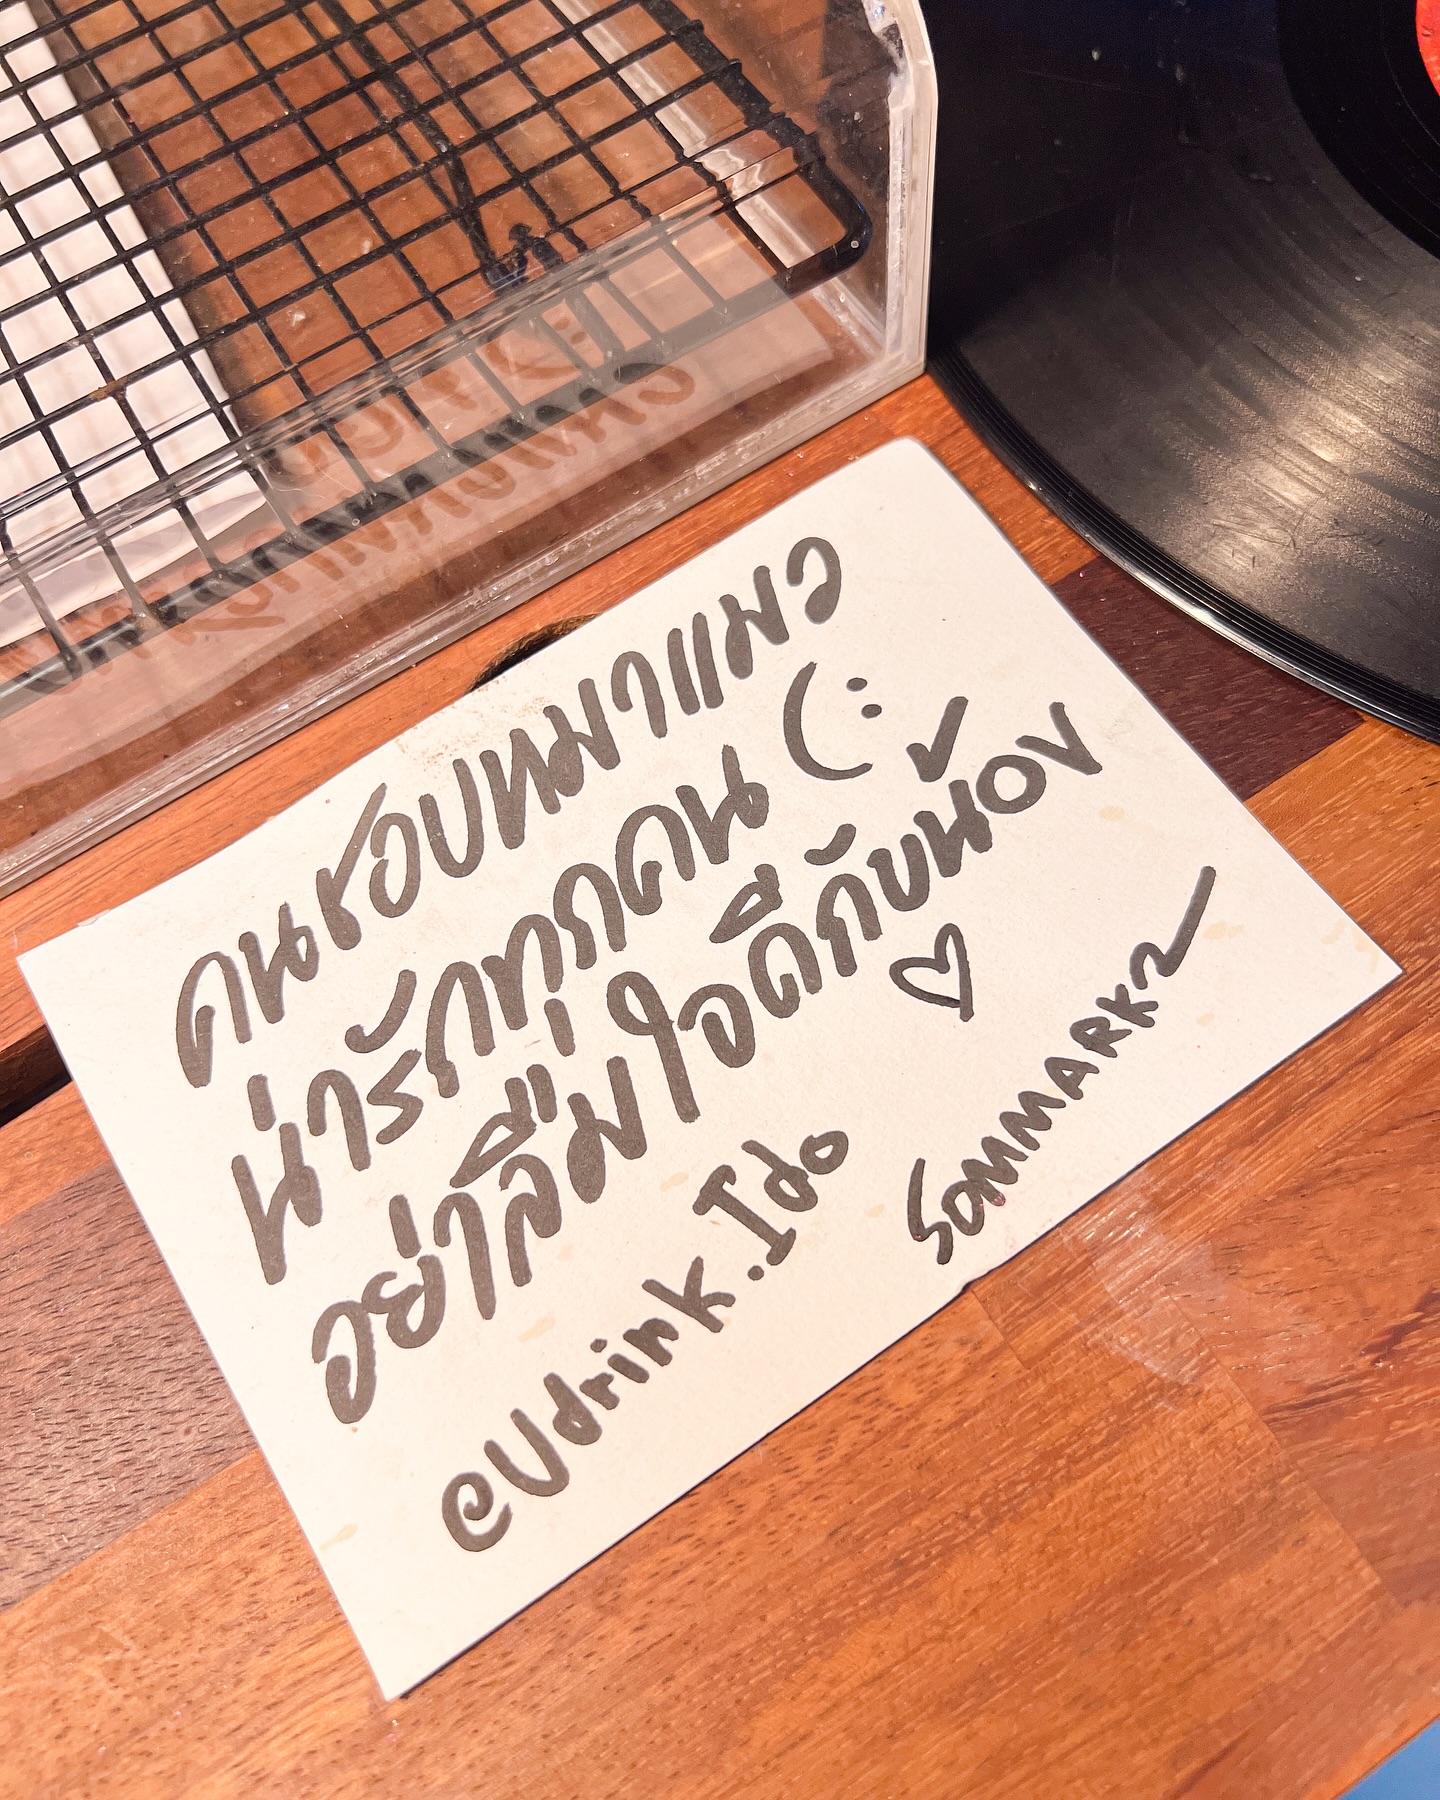 คนชอบหมาแมว
น่ารักทุกคน (:
อย่าลืมใจดีกับน้อง
♡
@Udrink.Ido
SOMMARK2